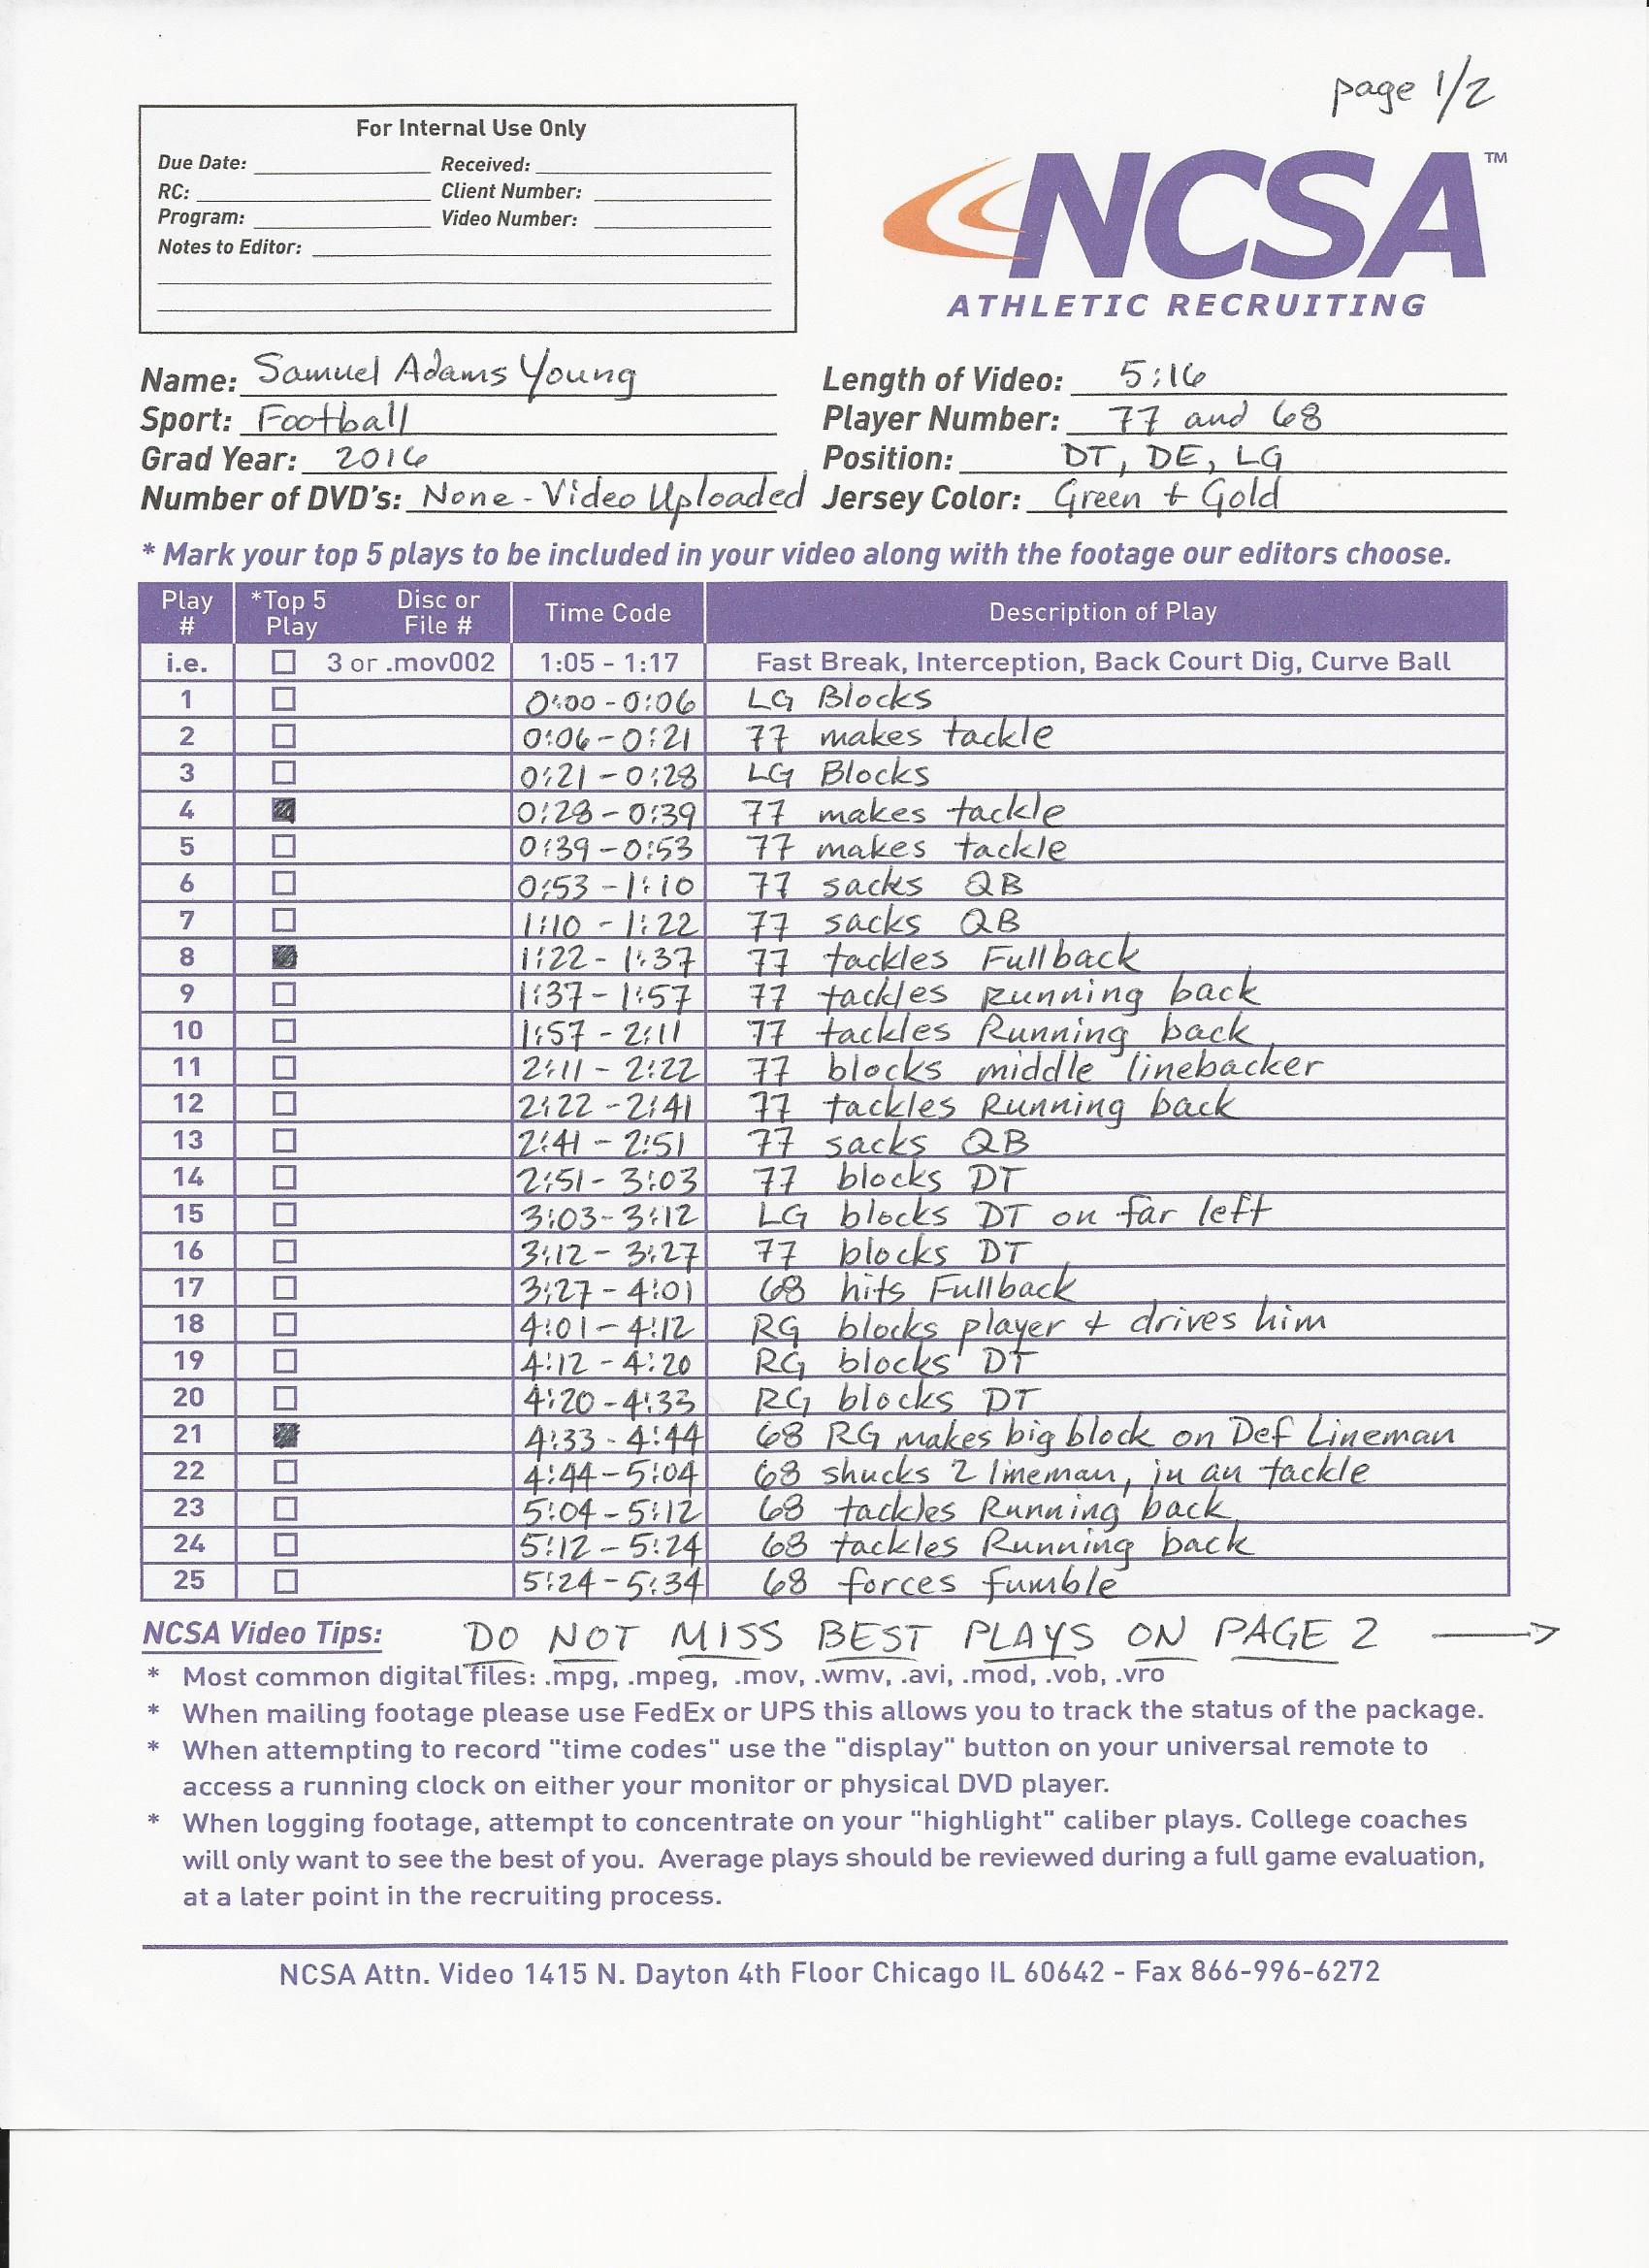 page 1/2
For Internal Use Only
Due Date: Received:
RC: Client Number:
Program: Video Number:
Notes to Editor:
NCSA™
ATHLETIC RECRUITING
Name: Samuel Adams Young Length of Video: 5:16
Sport: Football Player Number: 77 and 68
Grad Year: 2016 Position: DT, DE, LG
Number of DVD's: None - Video Uploaded Jersey Color: Green + Gold
* Mark your top 5 plays to be included in your video along with the footage our editors choose.
Play # *Top 5 Play Disc or File # Time Code Description of Play
i.e. 3 or .mov002 1:05 - 1:17 Fast Break, Interception, Back Court Dig, Curve Ball
1 0:00 - 0:06 LG Blocks
2 0:06 - 0:21 77 makes tackle
3 0:21 - 0:28 LG Blocks
4 0:28 - 0:39 77 makes tackle
5 0:39 - 0:53 77 makes tackle
6 0:53 - 1:10 77 sacks QB
7 1:10 - 1:22 77 sacks QB
8 1:22 - 1:37 77 tackles Fullback
9 1:37 - 1:57 77 tackles Running back
10 1:57 - 2:11 77 tackles Running back
11 2:11 - 2:22 77 blocks middle linebacker
12 2:22 - 2:41 77 tackles Running back
13 2:41 - 2:51 77 sacks QB
14 2:51 - 3:03 77 blocks DT
15 3:03 - 3:12 LG blocks DT on far left
16 3:12 - 3:27 77 blocks DT
17 3:27 - 4:01 68 hits Fullback
18 4:01 - 4:12 RG blocks player + drives him
19 4:12 - 4:20 RG blocks DT
20 4:20 - 4:33 RG blocks DT
21 4:33 - 4:44 68 RG makes big block on Def Lineman
22 4:44 - 5:04 68 shucks 2 lineman, in an tackle
23 5:04 - 5:12 68 tackles Running back
24 5:12 - 5:24 68 tackles Running back
25 5:24 - 5:34 68 forces fumble
NCSA Video Tips: DO NOT MISS BEST PLAYS ON PAGE 2 →
* Most common digital files: .mpg, .mpeg, .mov, .wmv, .avi, .mod, .vob, .vro
* When mailing footage please use FedEx or UPS this allows you to track the status of the package.
* When attempting to record "time codes" use the "display" button on your universal remote to
access a running clock on either your monitor or physical DVD player.
* When logging footage, attempt to concentrate on your "highlight" caliber plays. College coaches
will only want to see the best of you. Average plays should be reviewed during a full game evaluation,
at a later point in the recruiting process.
NCSA Attn. Video 1415 N. Dayton 4th Floor Chicago IL 60642 - Fax 866-996-6272